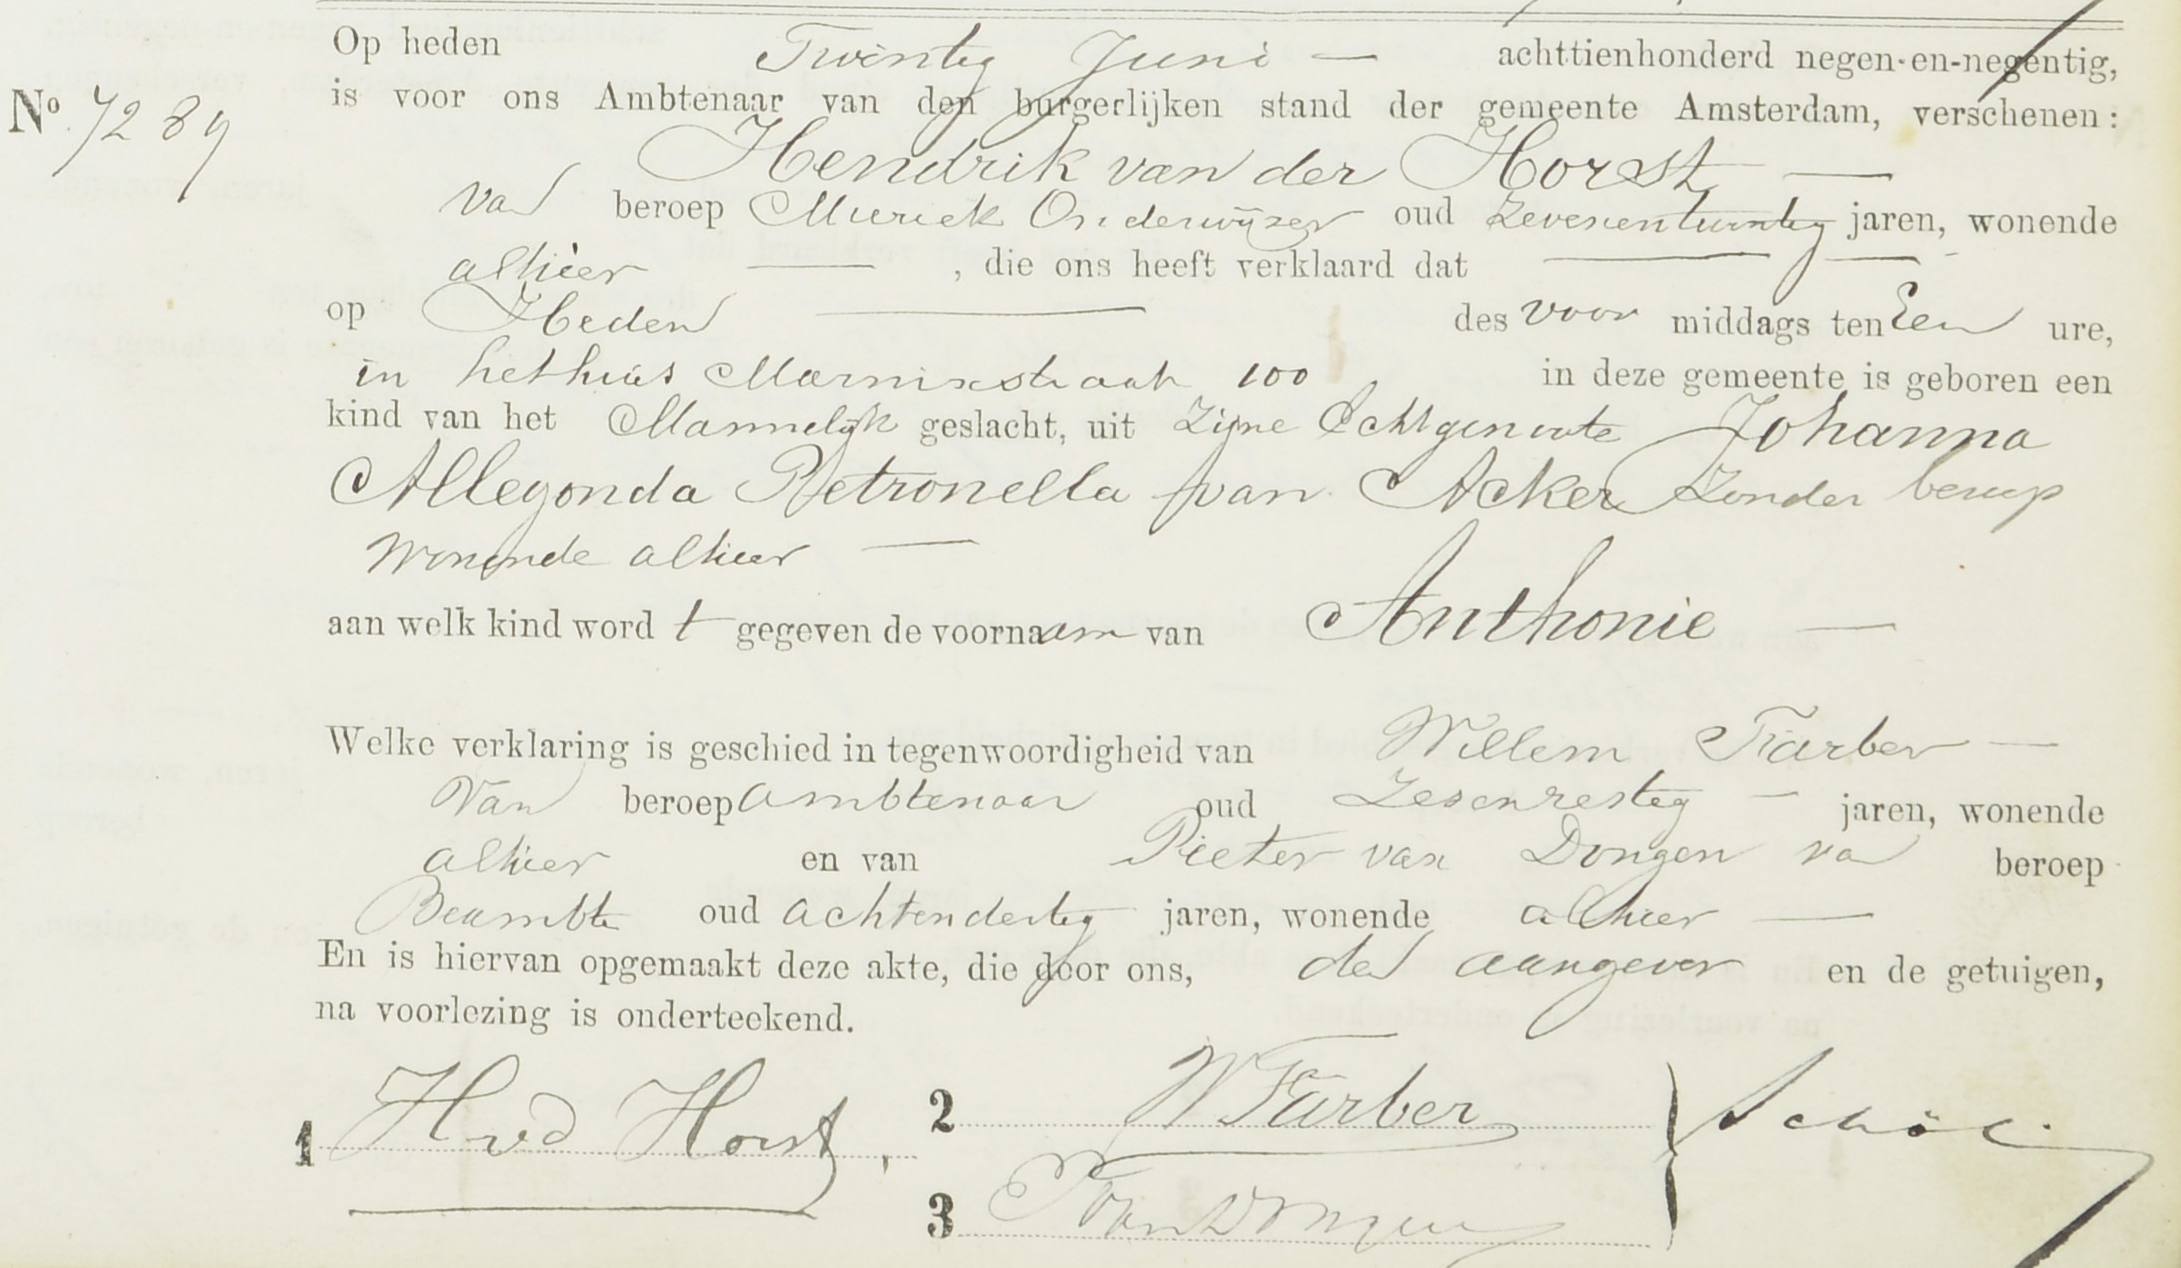 Op heden Twintig Juni — achttienhonderd negen-en-negentig,
No. 7289 is voor ons Ambtenaar van den burgerlijken stand der gemeente Amsterdam, verschenen:
Hendrik van der Horst —
van beroep Muziek Onderwijzer oud zevenentwintig jaren, wonende
alhier — , die ons heeft verklaard dat —
op Heden — des voor middags ten Een ure,
in het huis Marnixstraat 100 in deze gemeente is geboren een
kind van het Mannelijk geslacht, uit zijne Echtgenoote Johanna
Allegonda Petronella van Acker zonder beroep
wonende alhier —
aan welk kind word t gegeven de voornaam van Anthonie —
Welke verklaring is geschied in tegenwoordigheid van Willem Färber —
van beroep ambtenaar oud Zesenzestig — jaren, wonende
alhier en van Pieter van Dongen van beroep
Beambte oud achtendertig jaren, wonende alhier —
En is hiervan opgemaakt deze akte, die door ons, den aangever en de getuigen,
na voorlezing is onderteekend.
1 H vd Horst, 2 W Färber
3 P van Dongen